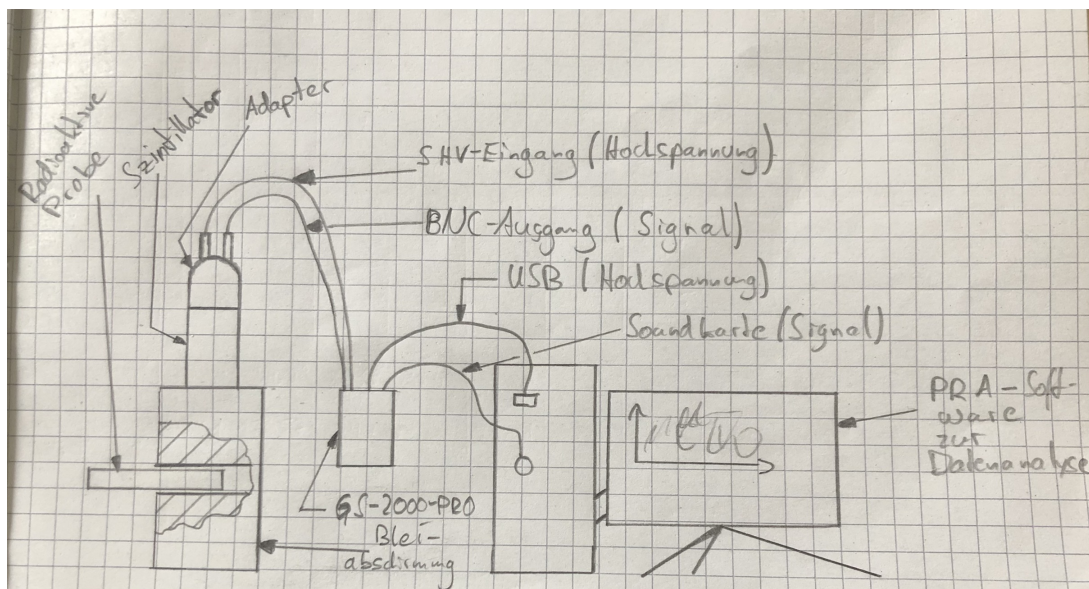 Radioaktive
Probe
Szintillator
Adapter
SHV-Eingang (Hochspannung)
BNC-Ausgang (Signal)
USB (Hochspannung)
Soundkarte (Signal)
PRA-Soft-
ware
zur
Datenanalyse
GS-2000-PRO
Blei-
abschirmung